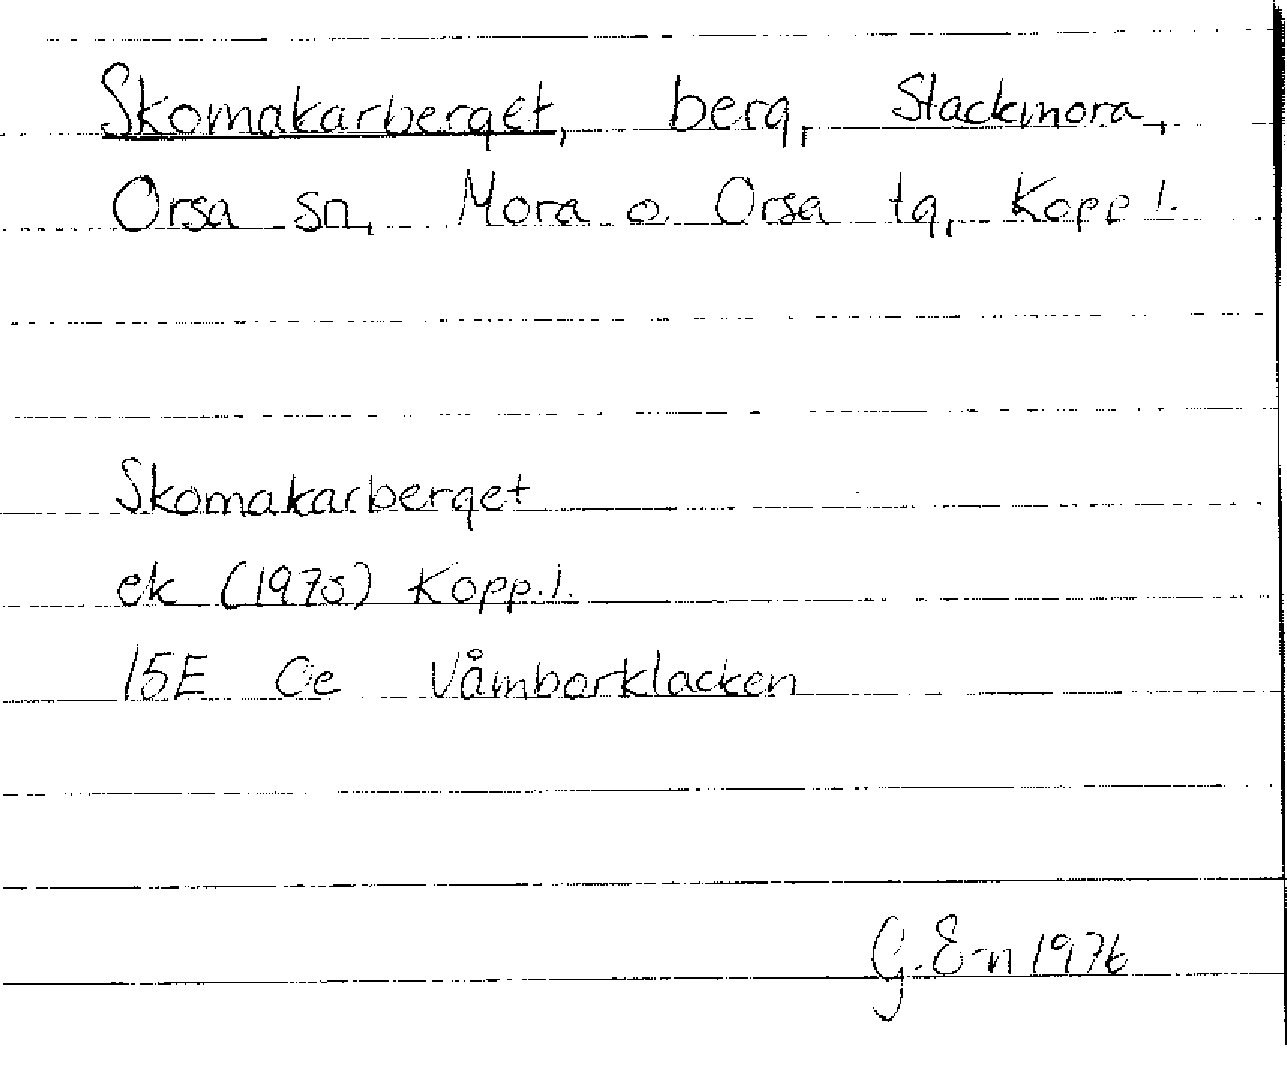 Skomakarberget, berg, Stackmora,
Orsa sn, Mora o Orsa tg, Kopp l.
Skomakarberget
ek (1975) Kopp.l.
15E Oe Våmbarklacken
G. E-n 1976